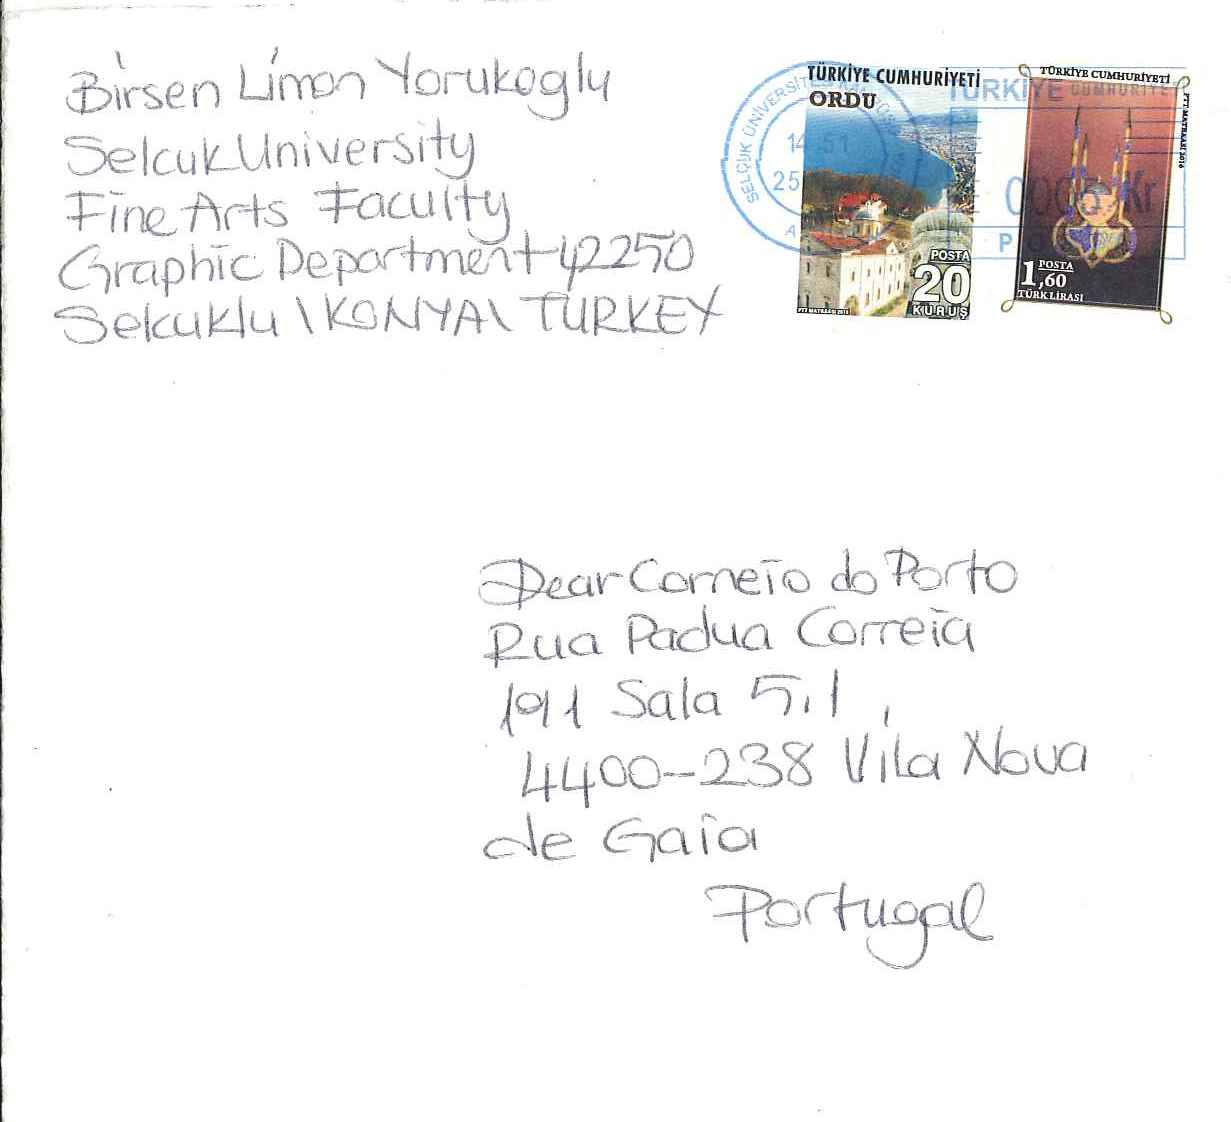 Birsen Limon Yorukoglu
Selcuk University
Fine Arts Faculty
Graphic Department 42250
Selcuklu \KONYA\ TURKEY
TÜRKİYE CUMHURİYETİ
ORDU
POSTA
20
KURUŞ
TÜRKİYE CUMHURİYETİ
PTT MATBAASI 2016
POSTA
1,60
TÜRK LİRASI
SELÇUK ÜNİVERSİTESİ
14 51
25
TÜRKİYE CUMHURİYE
Kr
Dear Correio do Porto
Rua Padua Correia
191 Sala 5.1,
4400-238 Vila Nova
de Gaia
Portugal